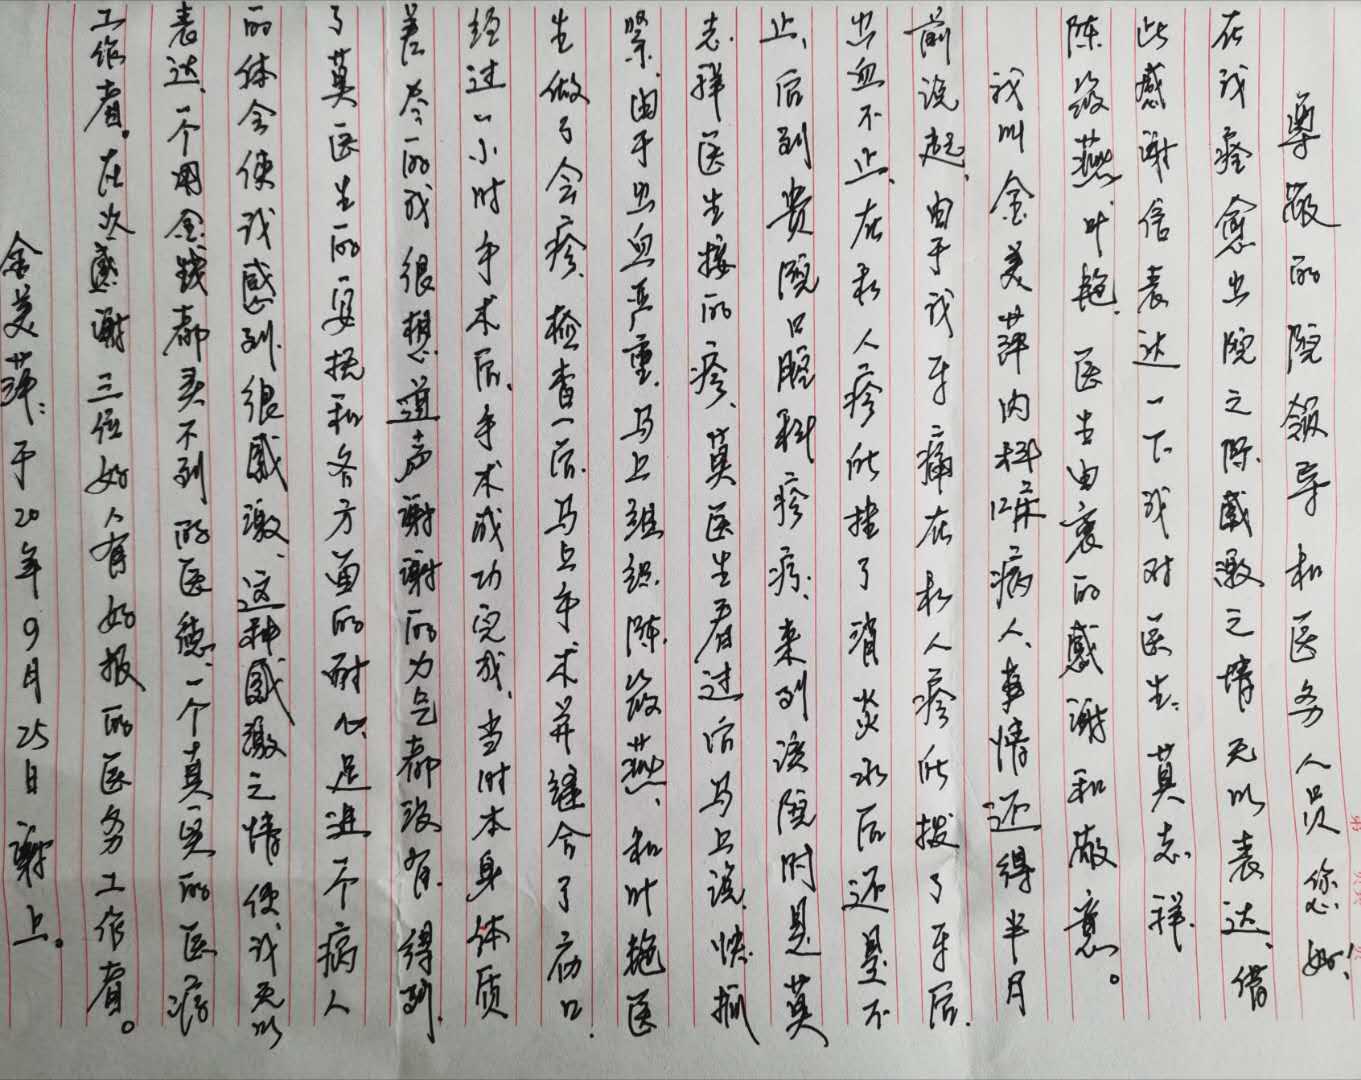 尊敬的院领导和医务人员您好、
在我痊愈出院之际感激之情无以表达、借
此感谢信表达一下我对医生：莫志祥.
陈筱燕叶艳.医生由衷的感谢和敬意。
我叫金美萍内科12床病人、事情还得半月
前说起、由于我牙痛在私人疹所拨了牙后.
出血不止、在私人疹所挂了消炎水后还是不
止、后到贵院口腔科疹疗.来到该院时是莫
志.祥医生接的疹、莫医生看过后马上说.快抓
紧.由于出血严重.马上组织.陈筱燕、和叶艳医
生做了会疹.检查一后.马上手术并缝合了疬口.
经过一小时手术后、手术成功完成、当时本身体质
差.今一的我很想道声谢谢的力气都没有.得到
了莫医生的一安抚和各方面的耐心足进一个病人
的体会使我感到.很感激、这种感激之情使我无以
表达、一个用金钱都买不到的医德、一个真实的医疗
工作者。在次感谢三位好人有好报的医务工作者。
金美萍：于20年9月25日谢上。